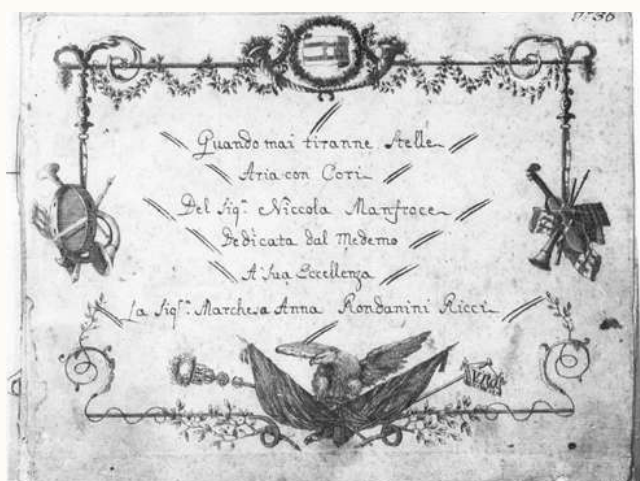 Quando mai tiranne Stelle
Aria con Cori
Del Sigr. Niccola Manfroce
Dedicata dal Medemo
A Sua Eccellenza
La Sigra. Marchesa Anna Rondanini Ricci